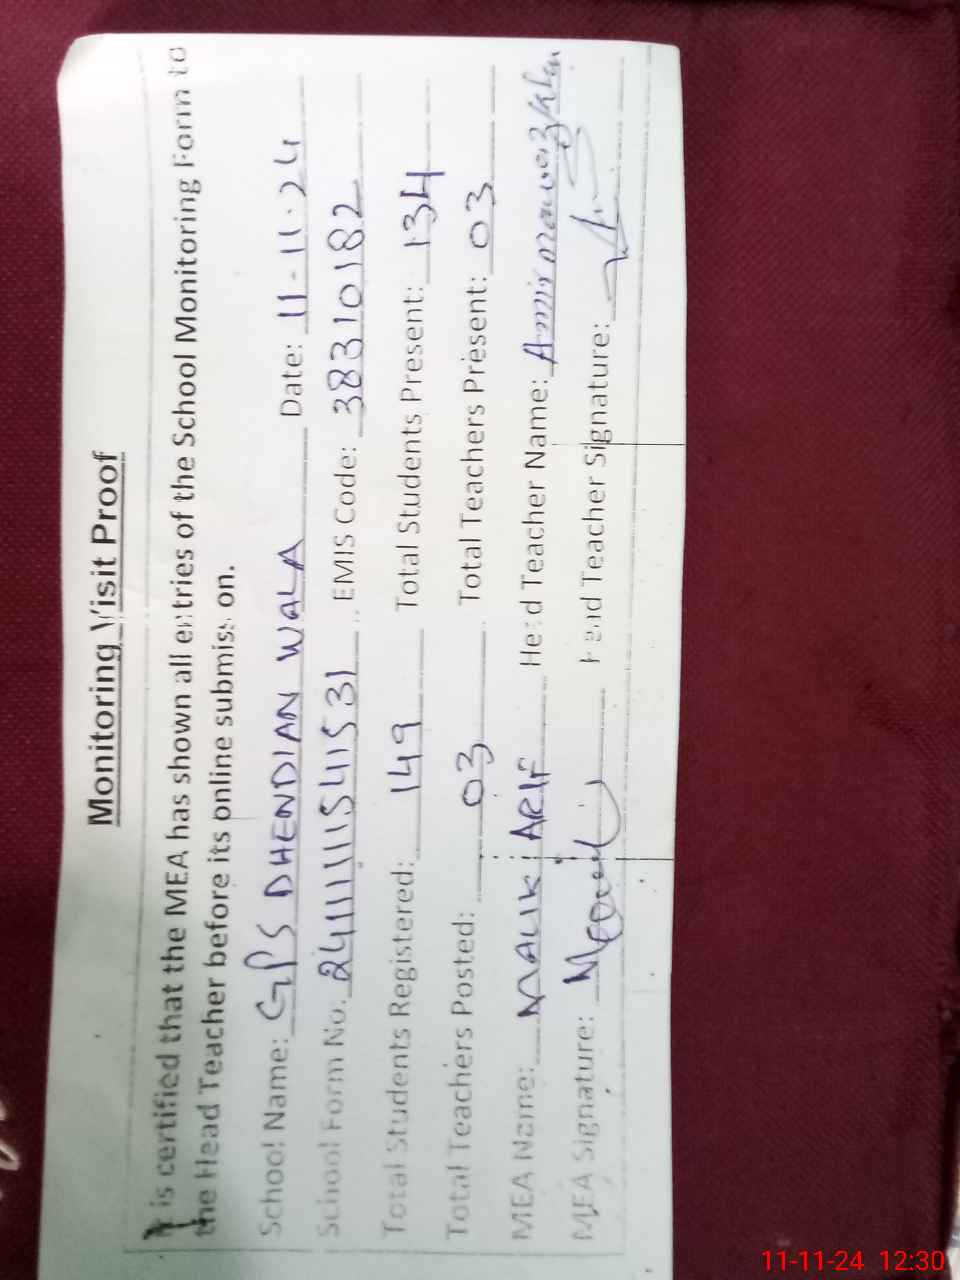 Monitoring Visit Proof
It is certified that the MEA has shown all entries of the School Monitoring Form to
the Head Teacher before its online submission.
School Name: GPS DHENDIAN WALA Date: 11-11-24
School Form No: EMIS Code: 38310182
Total Students Registered: 149 Total Students Present: 134
Total Teachers Posted: 03 Total Teachers Present: 03
MEA Name: MALIK ARIF Head Teacher Name: Amir
MEA Signature: Head Teacher Signature:
11-11-24 12:30